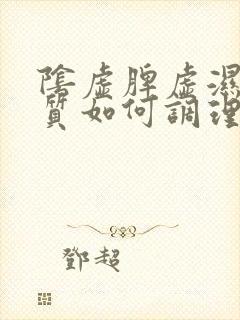 陰虛脾虛濕
質如何調理
鄧超